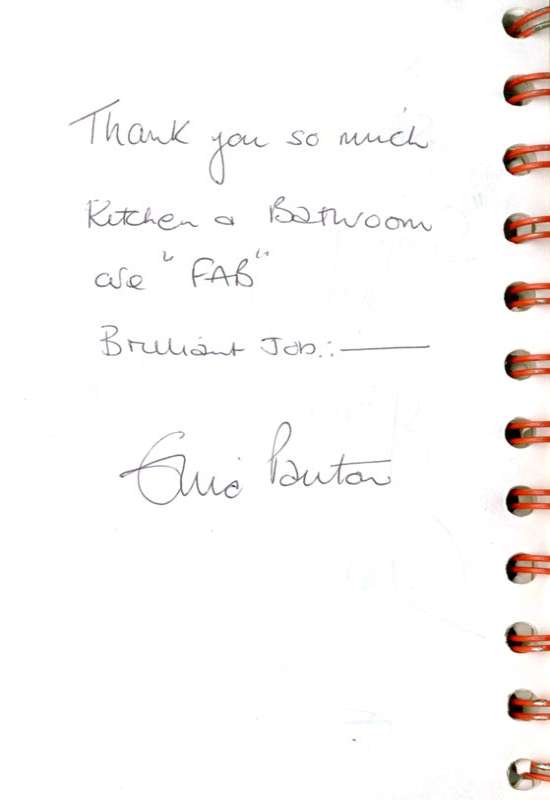 Thank you so much
Kitchen & Bathroom
are "FAB"
Brilliant Job.:—